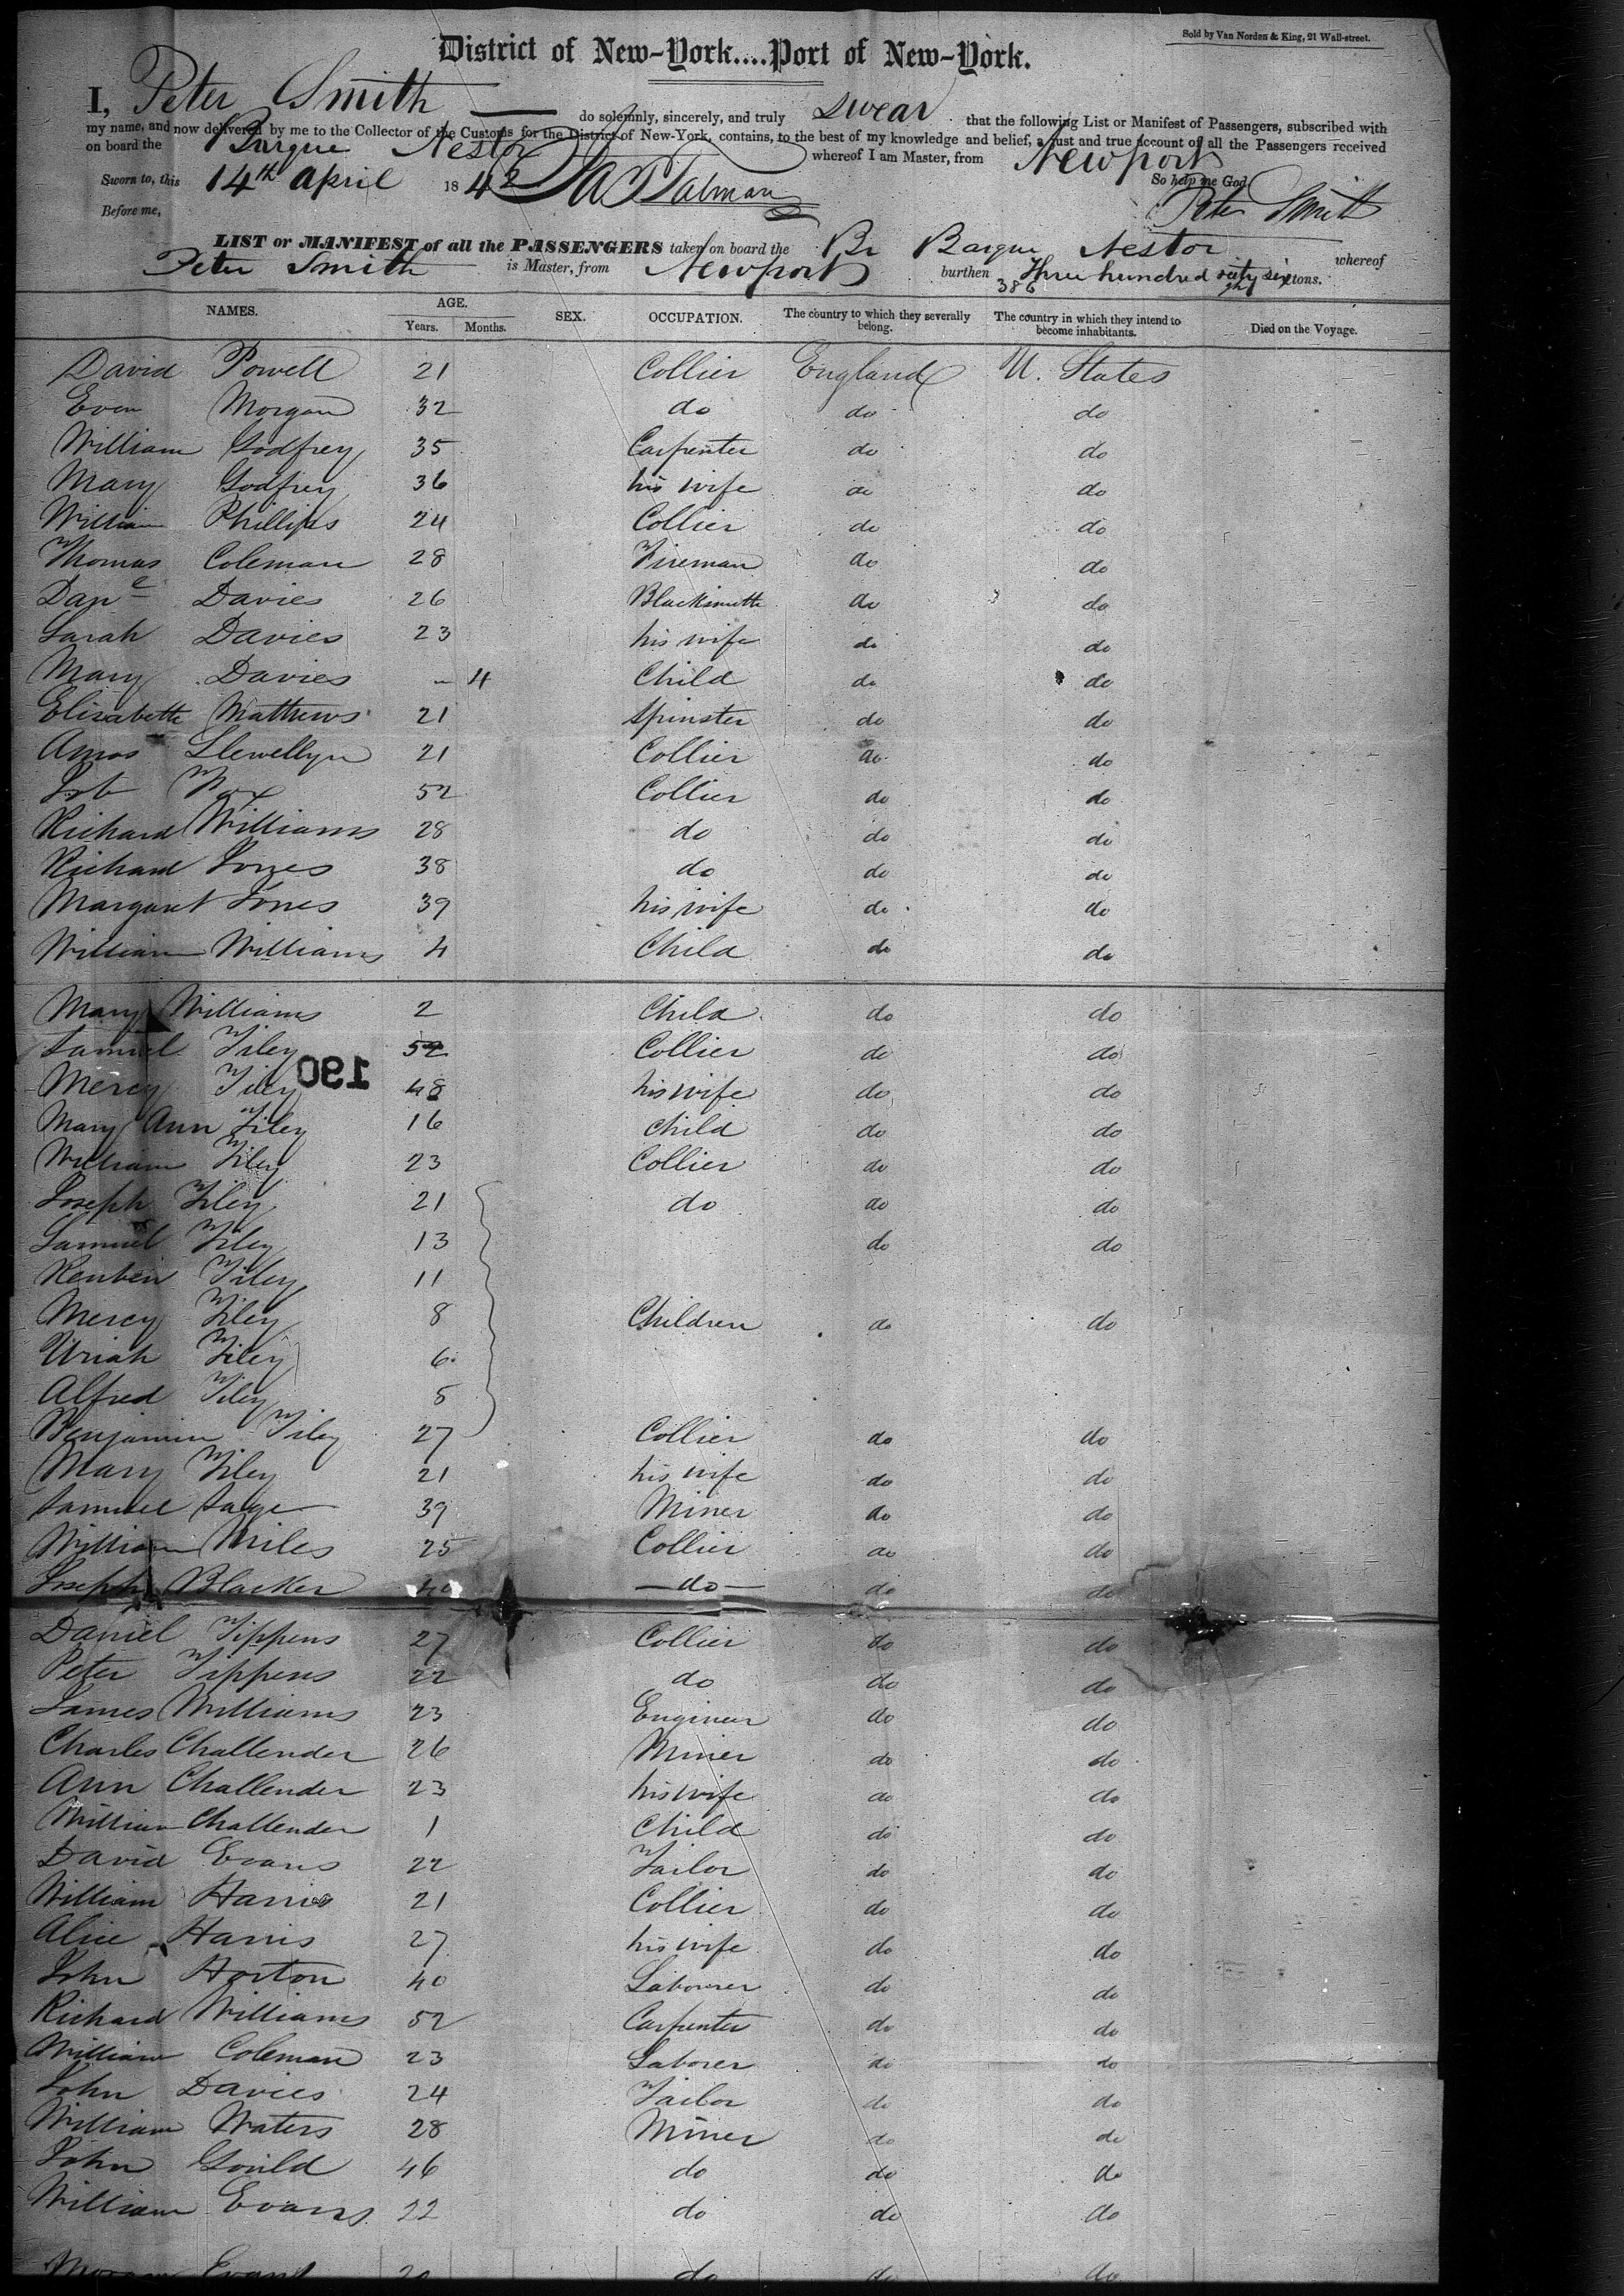 Sold by Van Norden & King, 21 Wall-street.
District of New-York....Port of New-York.
I, Peter Smith do solemnly, sincerely, and truly swear that the following List or Manifest of Passengers, subscribed with
my name, and now delivered by me to the Collector of the Customs for the District of New-York, contains, to the best of my knowledge and belief, a just and true account of all the Passengers received
on board the Barque Nestor whereof I am Master, from Newport
Sworn to, this 14th April 1842 So help me God
Before me, Peter Smith
LIST or MANIFEST of all the PASSENGERS taken on board the Br Barque Nestor whereof
Peter Smith is Master, from Newport burthen Three hundred eighty six tons.
386
NAMES. AGE. SEX. OCCUPATION. The country to which they severally belong. The country in which they intend to become inhabitants. Died on the Voyage.
Years. Months.
David Powell 21 Collier England U. States
Evan Morgan 32 do do do
William Godfrey 35 Carpenter do do
Mary Godfrey 36 his wife do do
William Phillips 24 Collier do do
Thomas Coleman 28 Fireman do do
Danl Davies 26 Blacksmith do do
Sarah Davies 23 his wife do do
Mary Davies - 4 Child do do
Elisabeth Matthews 21 Spinster do do
Amos Llewellyn 21 Collier do do
52 Collier do do
Richard Williams 28 do do do
Richard Jones 38 do do do
Margaret Jones 39 his wife do do
William Williams 4 Child do do
Mary Williams 2 Child do do
Samuel Tiley 52 Collier do do
Mercy Tiley 48 his wife do do
190
Mary Ann Tiley 16 Child do do
William Tiley 23 Collier do do
Joseph Tiley 21 do do do
Samuel Tiley 13 do do
Reuben Tiley 11
Mercy Tiley 8 Children do do
Uriah Tiley 6
Alfred Tiley 5
Benjamin Tiley 27 Collier do do
Mary Tiley 21 his wife do do
Samuel Sage 39 Miner do do
William Miles 25 Collier do do
Joseph Blacker 40 do do do
Daniel Tippens 27 Collier do do
Peter Tippens 22 do do do
James Williams 23 Engineer do do
Charles Challender 26 Miner do do
Ann Challender 23 his wife do do
William Challender 1 Child do do
David Evans 22 Tailor do do
William Harris 21 Collier do do
Alice Harris 27 his wife do do
John Horton 40 Labourer do do
Richard Williams 52 Carpenter do do
William Coleman 23 Laborer do do
John Davies 24 Tailor do do
William Waters 28 Miner do do
John Gould 46 do do do
William Evans 22 do do do
Evans 20 do do do